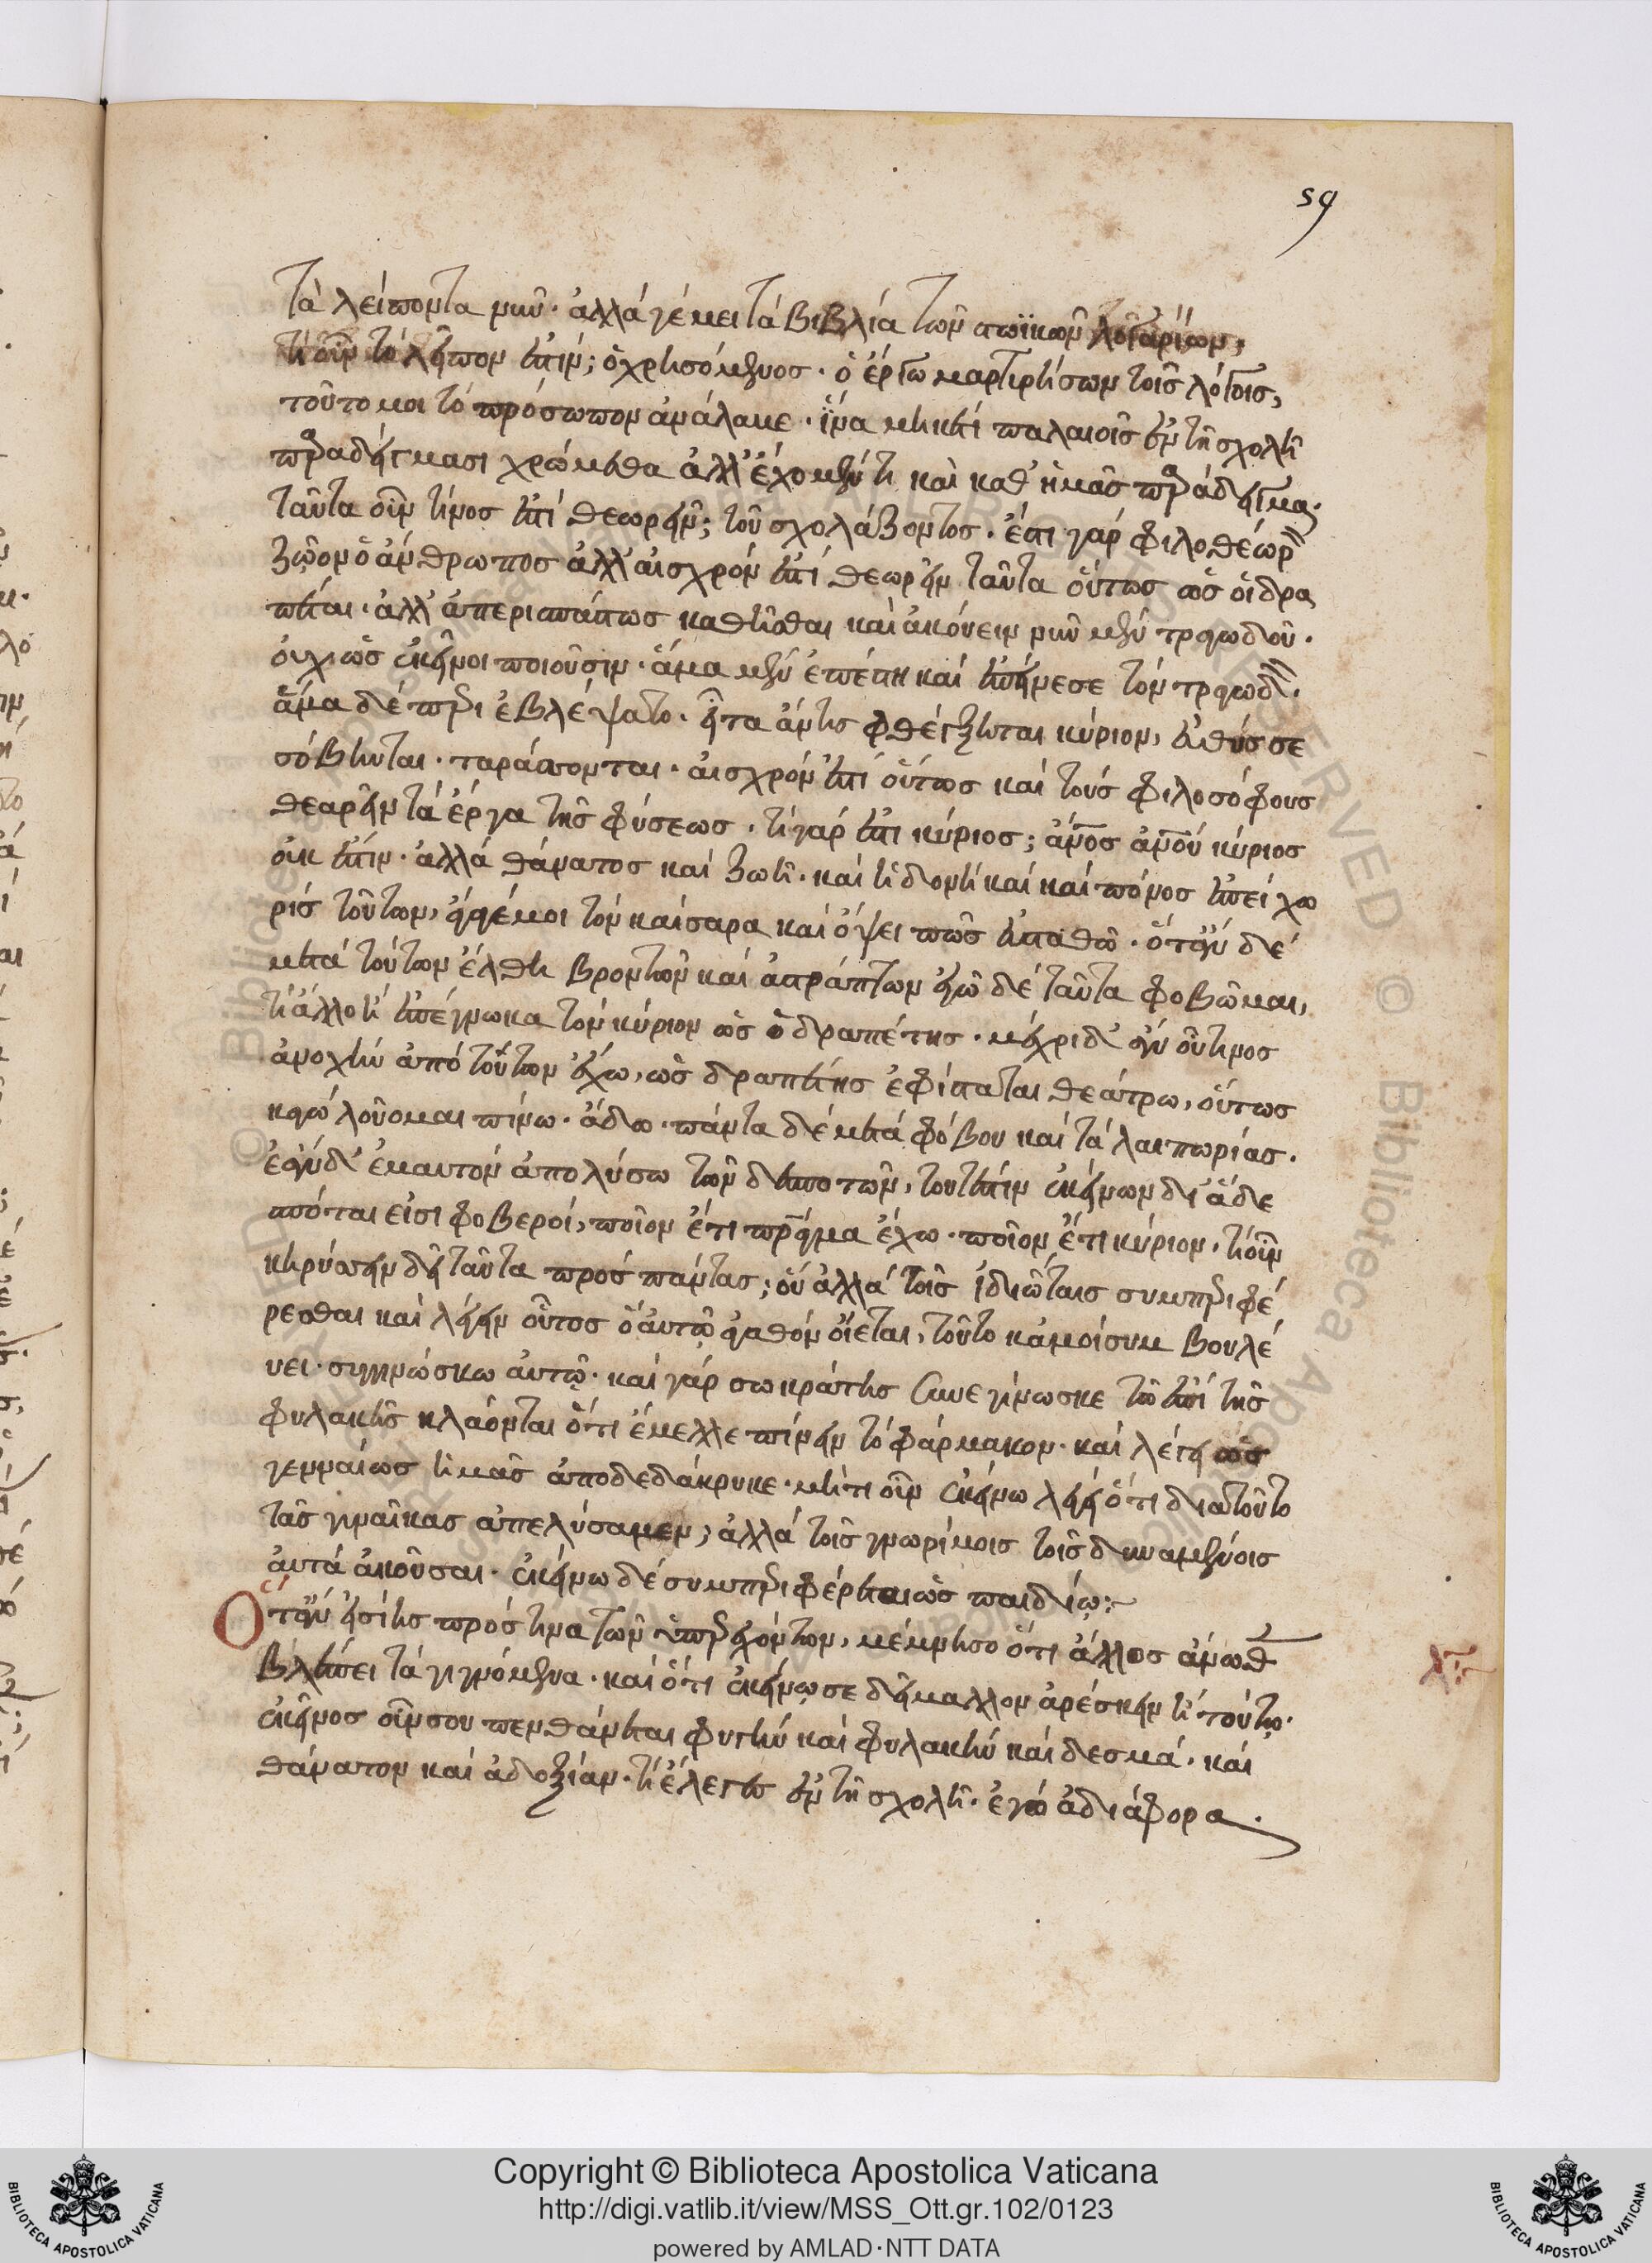 59
τὰ λείποντα νῦν· ἀλλά γέμει τά βιβλία τῶν στωϊκῶν λογαρίων,
τί οὖν τό λεῖπον ἐστίν; ὁ χρησόμενος· ὁ ἔργω μαρτυρήσων τοῖς λόγοις,
τοῦτο μοι τό πρόσωπον ἀνάλαμε· ἵνα μηκέτι παλαιοῖς ἐν τῆ σχολῆ
παραδείγμασι χρώμεθα ἀλλ' ἔχομεν τι καὶ καθ' ἡμᾶς παράδειγμα.
ταῦτα οὖν τίνος ἐστί θεωρεῖν; τοῦ σχολάζοντος. ἔστι γάρ φιλοθέωρον
ζῶον ὁ ἄνθρωπος ἀλλ' αἰσχρόν ἐστί θεωρεῖν ταῦτα οὕτως ὡς οἱ δρα
πέται. ἀλλ' ἀπεριστάτως καθῆσθαι καὶ ἀκούειν νῦν μέν τραγωδοῦ.
οὐχ ὡς ἐκεῖνοι ποιοῦσιν. ἅμα μέν ἐπέστη καί ἐπήνεσε τόν τραγωδόν.
ἅμα δέ περιεβλέψατο. εἶτα ἄν τις φθέγξηται κύριον, εὐθύς σε
σόβηνται. ταράσσονται. αἰσχρόν ἐστί οὕτως καί τούς φιλοσόφους
θεαρεῖν τά ἔργα τῆς φύσεως. τί γάρ ἐστι κύριος; ἄνος ἀνου κύριος
οὐκ ἔστιν. ἀλλά θάνατος καί ζωή. καί ἡδονή καί καί πόνος ἐπεί χω
ρίς τούτων, ἄγαγέ μοι τόν καίσαρα καί ὄψει πῶς εὐσταθῶ. ὅταν δέ
μετά τούτων ἔλθη βροντῶν καί ἀστράπτων ἐγώ δέ ταῦτα φοβῶμαι,
τί ἄλλο ἤ ἐπέγνωκα τόν κύριον ὡς ὁ δραπέτης. μέχρι δ' ἄν οὗ τινος
ἀνοχήν ἀπό τούτων ἔχω, ὡς δραπέτης ἐφίσταται θεάτρω, οὕτως
κἀγώ λούομαι πίνω. ἄδω. πάντα δέ μετά φόβου καί ταλαιπωρίας.
ἐάν δ' ἐμαυτόν ἀπολύσω τῶν δεσποτῶν, τουτέστιν ἐκείνων δι' ἅ δε
σπόται εἰσι φοβεροί, ποῖον ἔτι πρᾶγμα ἔχω. ποῖον ἔτι κύριον. τί οὖν
κηρύσσειν δεῖ ταῦτα πρός πάντας; οὐ ἀλλά τοῖς ἰδιώταις συμπεριφέ
ρεσθαι καί λέγειν οὗτος ὅ αὐτῶ ἀγαθόν οἴεται, τοῦτο κἀμοί συμ βουλέ
υει. συγγινώσκω αὐτῷ. καί γάρ σωκράτης συνεγίνωσκε τῶ ἐπί τῆς
φυλακῆς κλαόνται ὅτι ἔμελλε πίνειν τό φάρμακον. καί λέγει ὡς
γενναίως ἡμᾶς ἀποδεδάκρυκε. μήτι οὖν ἐκείνω λέγει ὅτι διατοῦτο
τάς γυναῖκας ἀπελύσαμεν; ἀλλά τοῖς γνωρίμοις τοῖς δυναμένοις
αὐτά ἀκοῦσαι. ἐκείνω δέ συμπεριφέρεται ὡς παιδίῳ:
Ὅταν εἰσίης πρός τινα τῶν ὑπερεχόντων, μέμνησο ὅτι ἄλλος ἄνωθεν
βλέπει τά γιγνόμενα. καί ὅτι ἐκείνῳ σε δεῖ μᾶλλον ἀρέσκειν ἤ τούτῳ.
ἐκεῖνος οὖν σου πενθάνεται φυγήν καί φυλακήν καί δεσμά. καί
θάνατον καί ἀδοξίαν. τί ἔλεγες ἐν τῆ σχολῆ. ἐγώ ἀδιάφορα.
© Biblioteca Apostolica Vaticana
Copyright © Biblioteca Apostolica Vaticana
http://digi.vatlib.it/view/MSS_Ott.gr.102/0123
powered by AMLAD·NTT DATA
BIBLIOTECA APOSTOLICA VATICANA
BIBLIOTECA APOSTOLICA VATICANA